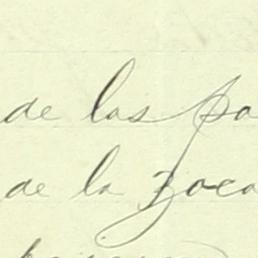 de las pa
de la zoca